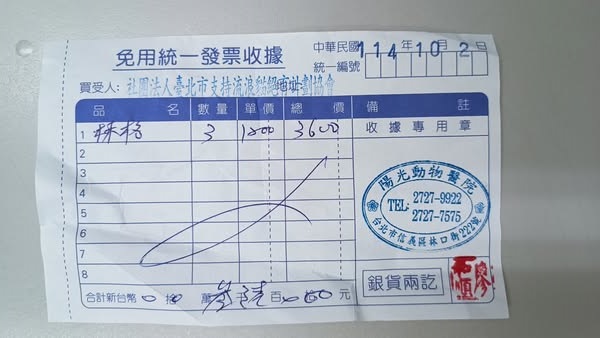 免用統一發票收據
中華民國 114年10月2日
統一編號
買受人: 社團法人臺北市支持流浪貓絕育計劃協會
品名 數量 單價 總價 備註
1 3 1200 3600 收據專用章
2
3
4
5
6
7
8
陽光動物醫院
TEL: 2727-9922
2727-7575
台北市信義區林口街222號
銀貨兩訖
合計新台幣 0 拾 0 萬 叁 仟 陸 百 0 拾 0 元